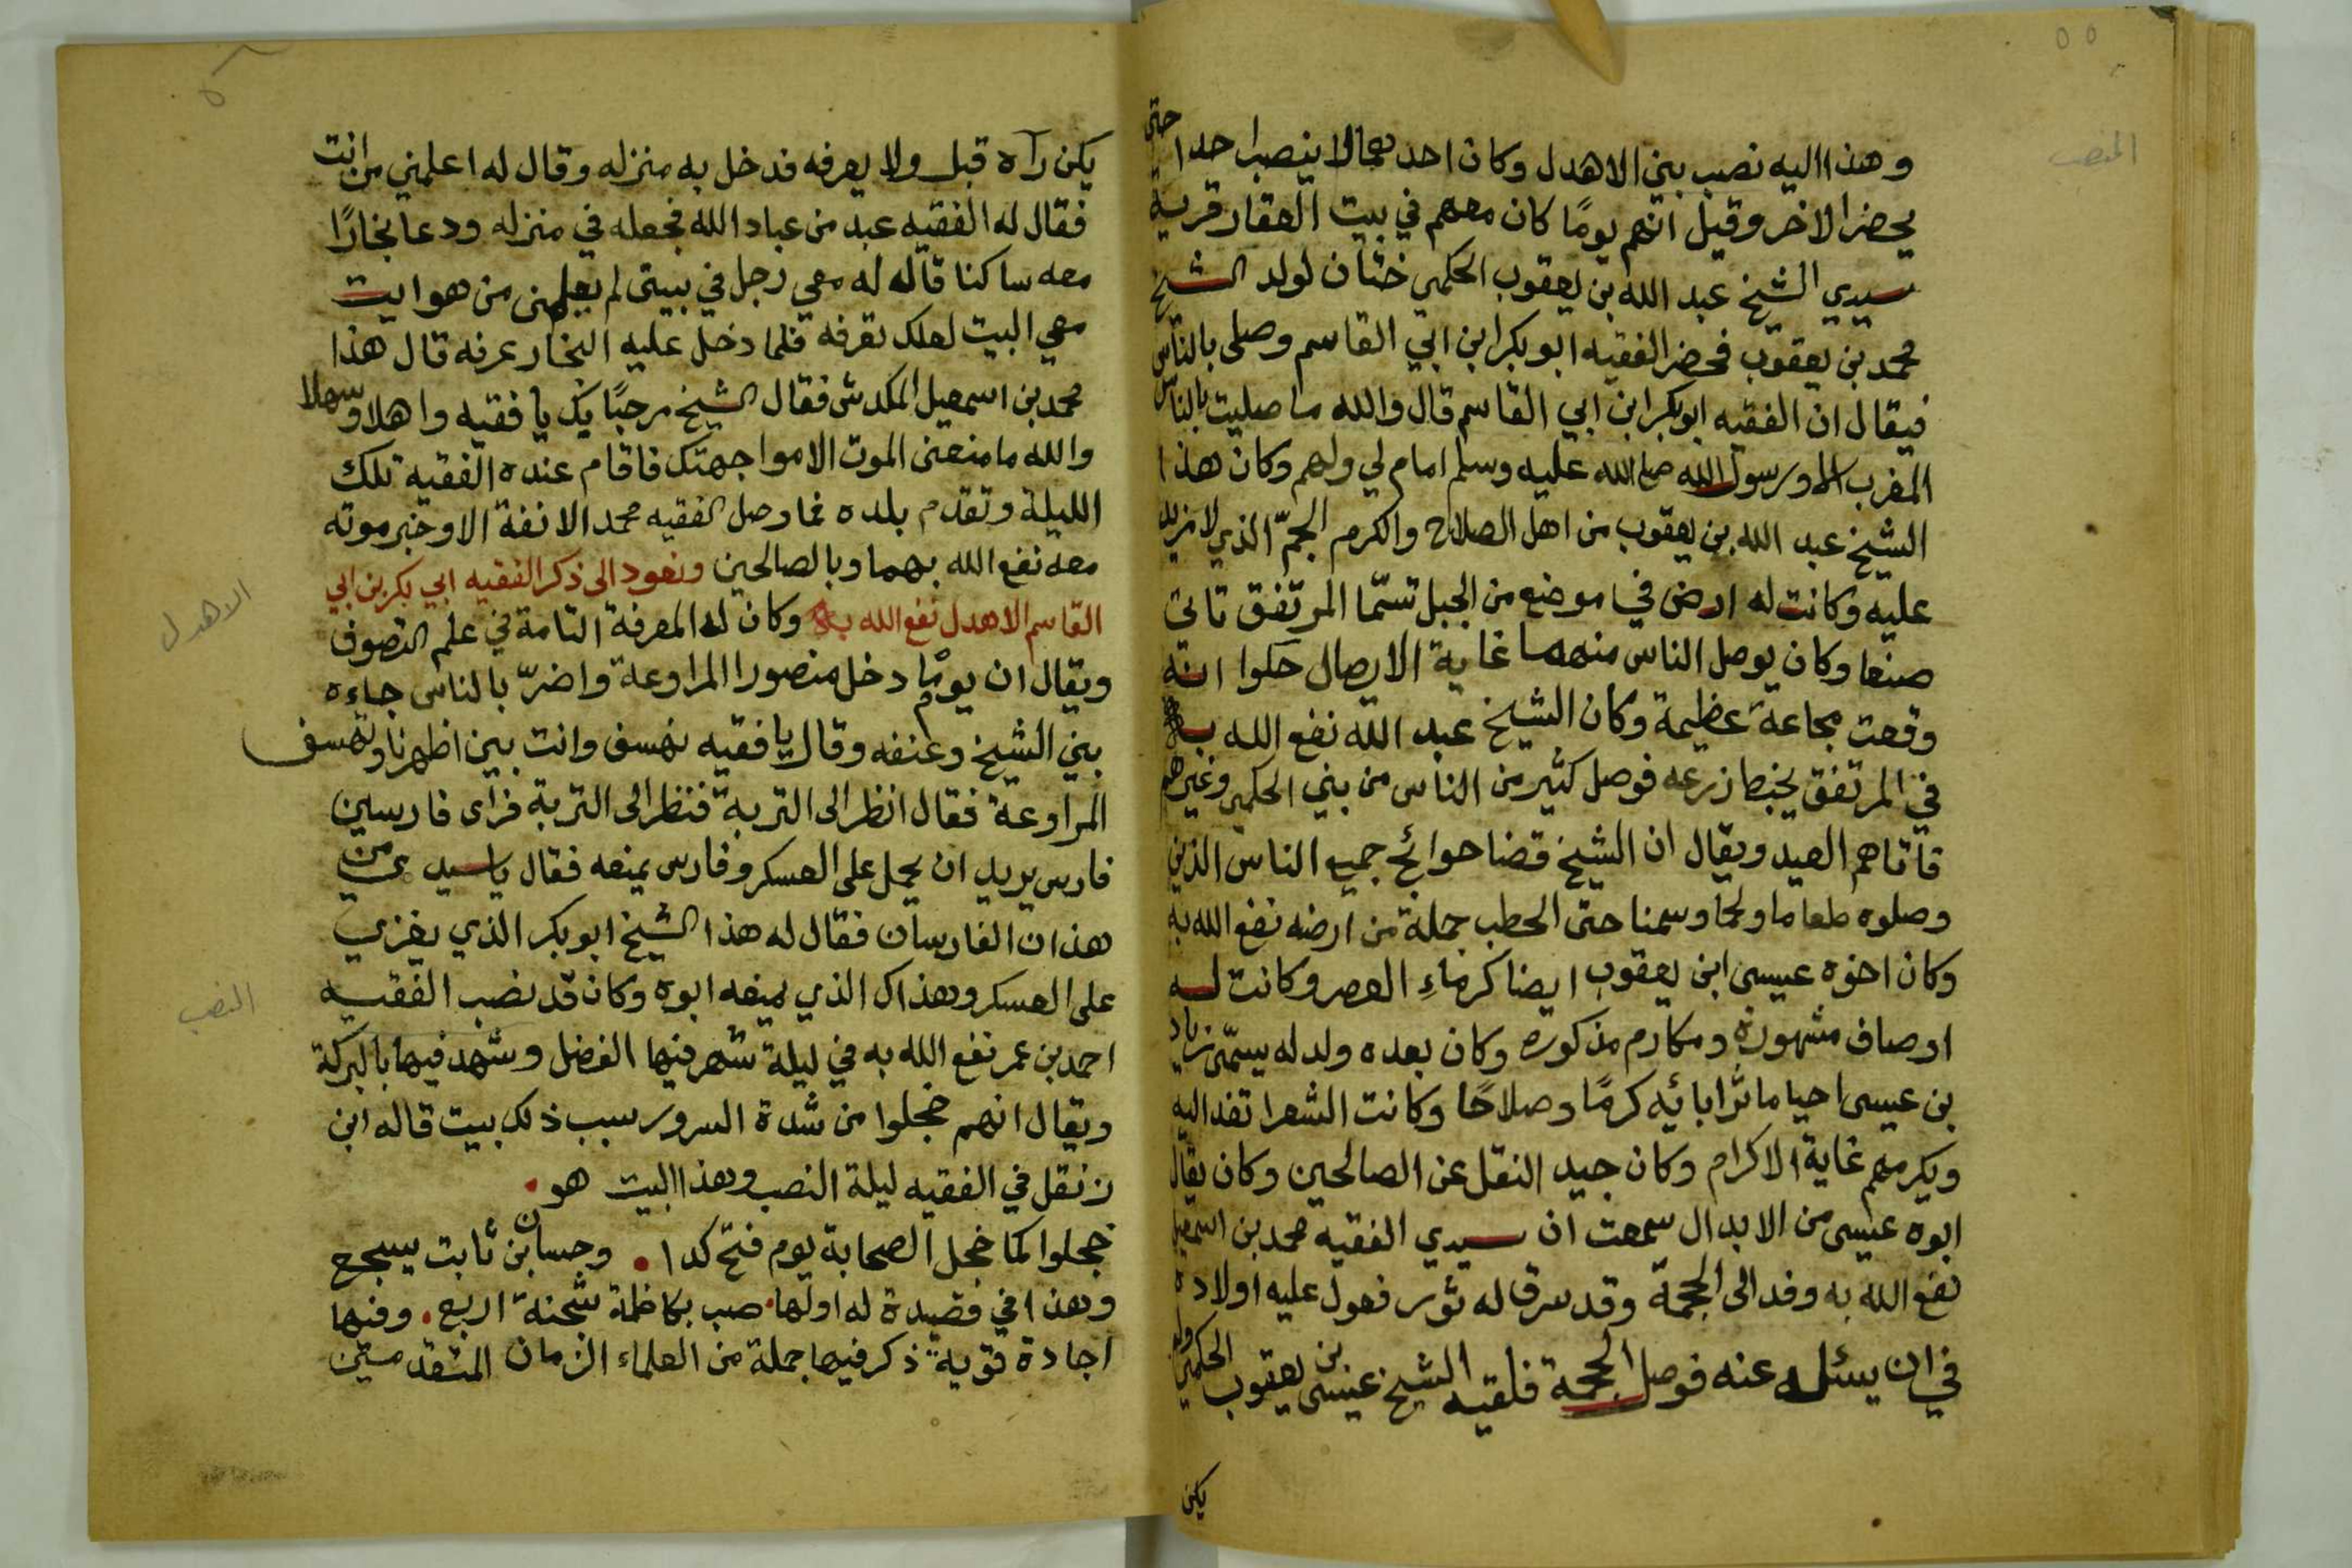 ٥٥
المنصب
وهذا اليه نصب بني الاهدل وكان احدهما لا ينصب احدا حتى
يحضر الاخر وقيل انهم يومًا كان معهم في بيت العقار قرية
سيدي الشيخ عبد الله بن يعقوب الحكمي ختان لولد الشيخ
محمد بن يعقوب فحضر الفقيه ابو بكر ابن ابي القاسم وصلى بالناس
فيقال ان الفقيه ابوبكر ابن ابي القاسم قال والله ما صليت بالناس
المغرب الا ورسول الله صلى الله عليه وسلم امام لي ولهم وكان هذا
الشيخ عبد الله بن يعقوب من اهل الصلاح والكرم الجمّ الذي لا مزيد
عليه وكانت له ارض في موضع من الجبل تسمّا المرتفق تاتي
صنعا وكان يوصل الناس منهما غاية الايصال حكوا انه
وقعت مجاعة عظيمة وكان الشيخ عبد الله نفع الله به
في المرتفق يخبط زرعه فوصل كثير من الناس من بني الحكمي وغيرهم
فاتاهم العيد ويقال ان الشيخ قضا حوائج جميع الناس الذين
وصلوه طعاما ولحما وسمنا حتى الحطب جملة من ارضه نفع الله به
وكان اخوه عيسى ابن يعقوب ايضا كرماءِ العصر وكانت له
اوصاف مشهورة ومكارم مذكوره وكان بعده ولد له يسمّى زياد
بن عيسى احيا ماثر ابائه كرمًا وصلاحًا وكانت الشعرا تفد اليه
ويكرمهم غاية الاكرام وكان جيد النقل عن الصالحين وكان يقال
ابوه عيسى من الابدال سمعت ان سيدي الفقيه محمد بن اسمعيل
نفع الله به وفد الى الجحمة وقد سرق له ثور فعول عليه اولاده
في ان يسئل عنه فوصل الجحمة فلقيه الشيخ عيسى بن يعقوب الحكمي ولم
يكن
يكن رآه قبل ولا يعرفه فدخل به منزله وقال له اعلمني من انت
فقال له الفقيه عبد من عباد الله فجعله في منزله ودعا نجارًا
معه ساكنا قاله له معي رجل في بيتي لم يعلمني من هو ايت
معي البيت لعلك تعرفه فلما دخل عليه النجار عرفه قال هذا
محمد بن اسمعيل المكدش فقال الشيخ مرحبًا بك يا فقيه واهلا وسهلا
والله ما منعني الموت الا مواجهتك فاقام عنده الفقيه تلك
الليلة وتقدم بلده فما وصل الفقيه محمد الانفة الا وخبر موته
معه نفع الله بهما وبالصالحين ونعود الى ذكر الفقيه ابي بكر بن ابي
القاسم الاهدل نفع الله به وكان له المعرفة التامة في علم التصوف
ويقال ان يومًا دخل منصور المراوعة واضرّ بالناس جاءه
بني الشيخ وعنفه وقال يا فقيه نهسف وانت بين اظهرنا وتهسف
المراوعة فقال انظر الى التربة فنظر الى التربة فرأى فارسين
فارس يريد ان يحمل على العسكر وفارس يمنعه فقال يا سيدي من
هذان الفارسان فقال له هذا الشيخ ابو بكر الذي يغزي
على العسكر وهذاك الذي يمنعه ابوه وكان قد نصب الفقيه
احمد بن عمر نفع الله به في ليلة شهر فيها الفضل وشهد فيها بالبركة
ويقال انهم حجلوا من شدة السرور سبب ذلك بيت قاله ابن
زنقل في الفقيه ليلة النصب وهذا البيت هو
حجلوا كما حجل الصحابة يوم فتح كدا وحسان بن ثابت يسجع
وهذا في قصيدة له اولها صب بكاظمة شحنة اربع وفيها
اجادة قوية ذكر فيها جملة من العلماء الزمان المتقدمين
الاهدل
النصب